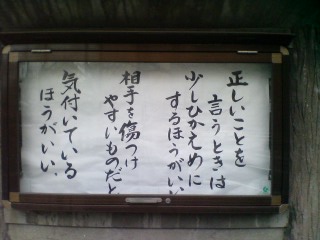 正しいことを
言うときは
少しひかえめに
するほうがいい
相手を傷つけ
やすいものだと
気付いている
ほうがいい.